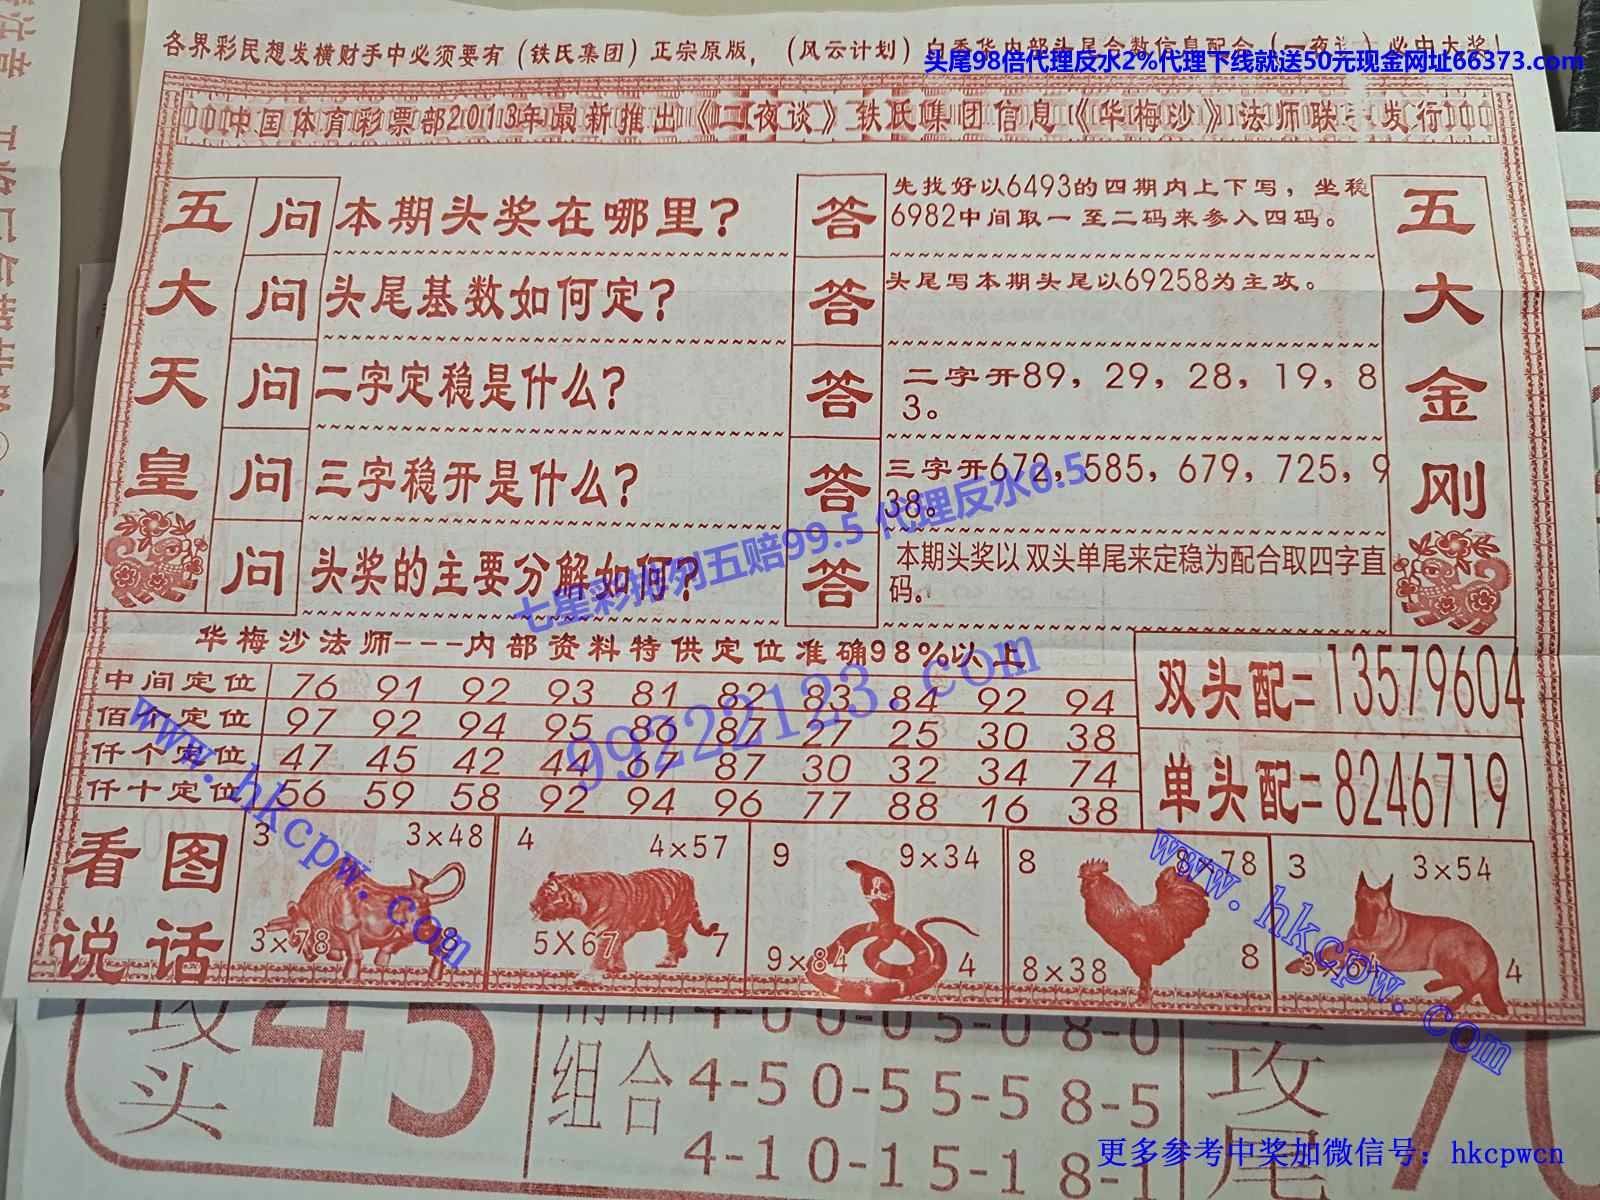 各界彩民想发横财手中必须要有（铁氏集团）正宗原版，（风云计划）白秀华内部头尾合数信息配合（一夜
头尾98倍代理反水2%代理下线就送50元现金网址66373.com
中国体育彩票部2013年最新推出《二夜谈》铁氏集团信息《华梅沙》法师联 发行
五大天皇
问 本期头奖在哪里？
答 先找好以6493的四期内上下写，坐稳
6982中间取一至二码来参入四码。
问 头尾基数如何定？
答 头尾写本期头尾以69258为主攻。
问 二字定稳是什么？
答 二字开89，29，28，19，8
3。
问 三字稳开是什么？
答 三字开672，585，679，725，9
38。
问 头奖的主要分解如何？
答 本期头奖以 双头单尾来定稳为配合取四字直
码。
五大金刚
七星彩排列五赔99.5 代理反水0.5
99222123.com
华梅沙法师---内部资料特供定位准确98%以上
中间定位 76 91 92 93 81 82 83 84 92 94
佰个定位 97 92 94 95 86 87 27 25 30 38
仟个定位 47 45 42 44 67 87 30 32 34 74
仟十定位 56 59 58 92 94 96 77 88 16 38
双头配=13579604
单头配=8246719
www.hkcpw.com
www.hkcpw.com
看图
说话
3 3×48
3×78 8
4 4×57
5×67 7
9 9×34
9×84 4
8 8×78
8×38 8
3 3×54
4
攻头
45
组合
4-5 0-5 5-5 8-5
4-1 0-1 5-1 8-1
攻尾
更多参考中奖加微信号：hkcpwcn